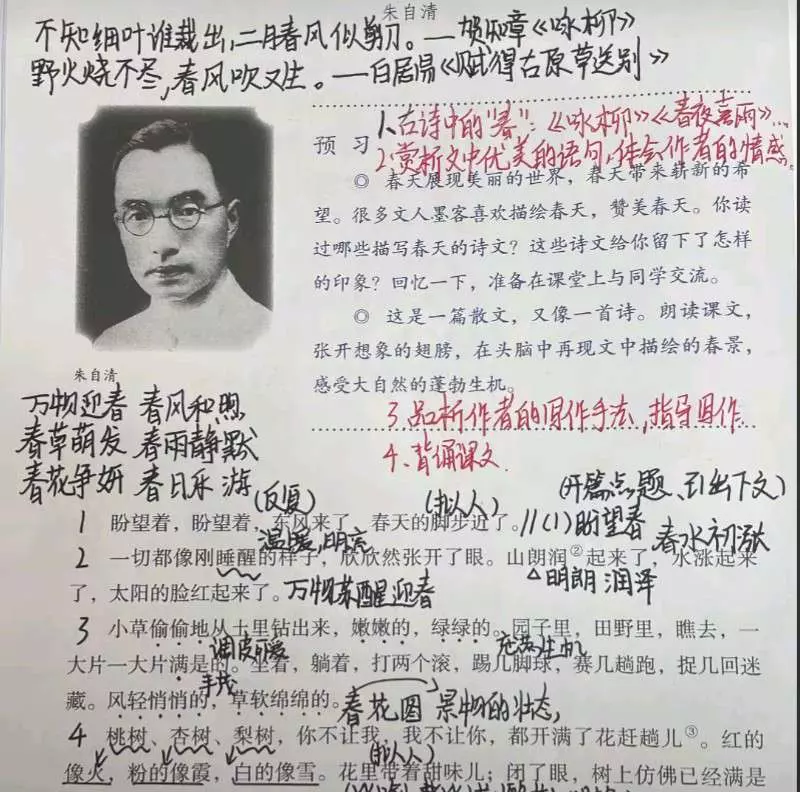 朱自清
不知细叶谁裁出,二月春风似剪刀。—贺知章《咏柳》
野火烧不尽,春风吹又生。—白居易《赋得古原草送别》
预 习
1、古诗中的"春":《咏柳》《春夜喜雨》…
2、赏析文中优美的语句,体会作者的情感。
◎ 春天展现美丽的世界,春天带来崭新的希
望。很多文人墨客喜欢描绘春天,赞美春天。你读
过哪些描写春天的诗文?这些诗文给你留下了怎样
的印象?回忆一下,准备在课堂上与同学交流。
◎ 这是一篇散文,又像一首诗。朗读课文,
张开想象的翅膀,在头脑中再现文中描绘的春景,
感受大自然的蓬勃生机。
3、品析作者的写作手法,指导写作
4、背诵课文
朱自清
万物迎春 春风和煦
春草萌发 春雨静默
春花争妍 春日乐游
(反复) (拟人) (开篇点题、引出下文)
1 盼望着,盼望着,东风来了,春天的脚步近了。//(1)盼望春
温暖,明亮 春水初涨
2 一切都像刚睡醒的样子,欣欣然张开了眼。山朗润②起来了,水涨起来
了,太阳的脸红起来了。万物苏醒迎春 △明朗润泽
3 小草偷偷地从土里钻出来,嫩嫩的,绿绿的。园子里,田野里,瞧去,一
调皮可爱 充满生机
大片一大片满是的。坐着,躺着,打两个滚,踢几脚球,赛几趟跑,捉几回迷
藏。风轻悄悄的,草软绵绵的。春花图 景物的状态,
4 桃树、杏树、梨树,你不让我,我不让你,都开满了花赶趟儿③。红的
(拟人)
像火,粉的像霞,白的像雪。花里带着甜味儿;闭了眼,树上仿佛已经满是